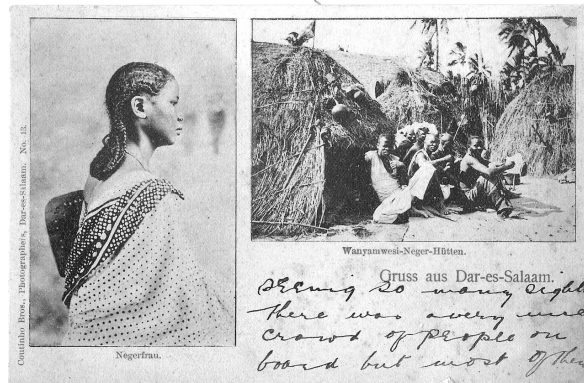 Coutinho Bros., Photographers, Dar-es-Salaam. No. 13.
Negerfrau.
Wanyamwesi-Neger-Hütten.
Gruss aus Dar-es-Salaam.
seeing so many sight
there was a very
crowd of people on
board but most of